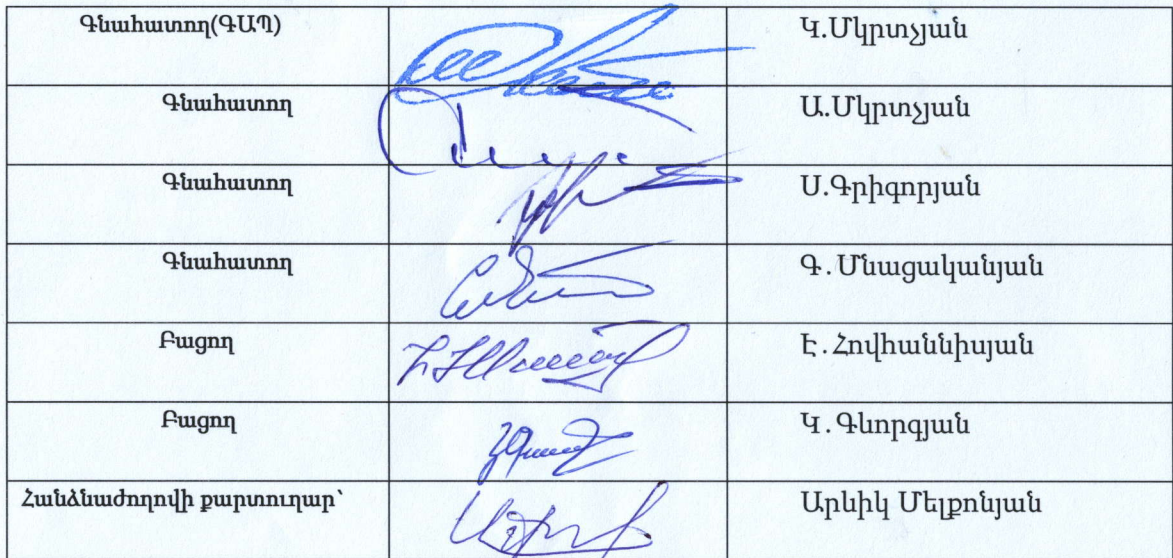 Գնահատող(ԳԱՊ) Կ.Մկրտչյան
Գնահատող Ա.Մկրտչյան
Գնահատող Ս.Գրիգորյան
Գնահատող Գ. Մնացականյան
Բացող Է. Հովհաննիսյան
Բացող Կ. Գևորգյան
Հանձնաժողովի քարտուղար՝ Արևիկ Մելքոնյան